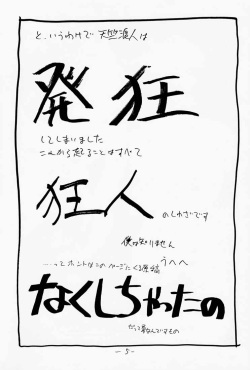 と、いうわけで 天竺浪人は
発狂
してしまいました
これから起ることはすべて
狂人
のしわざです
僕は知りません
うへへ
…ってホントはこの
なくしちゃったの
だって夏なんですもの
- 5 -